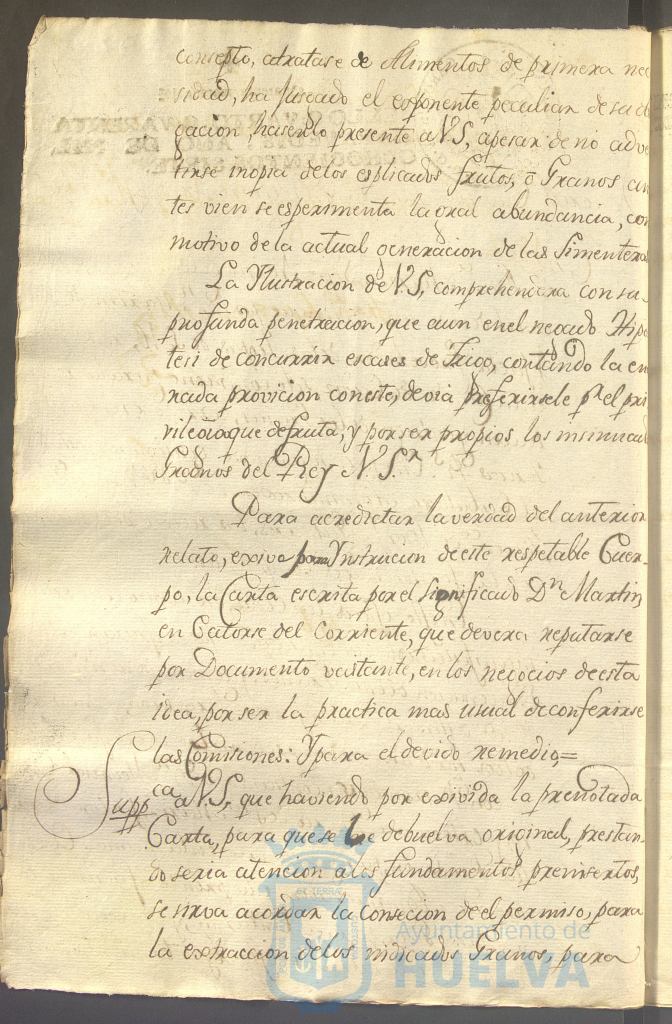 consepto, atratase de Alimentos de primera nec
sidad, ha Jusgado el esponente peculiar de su ob
gacion, haserlo presente a VS, apesar de no adve
tirse inopia delos esplicados frutos, ò Granos an
tes vien se esperimenta la gral abundancia, con
motivo de la actual generacion de las Simenteras
La Ylustracion de V.S, comprehendera con su
profunda penetracion, que aun en el negado Hipo
tesi de concurrir escases de Trigo, contando la en
nada provicion con este, devia preferirsele pr el pri
vilegia que disfruta, y por ser propios los insinuad
Granos del Rey N.Sr
Para acredictar la verdad del anterior
relato, exivo para Ynstrucion de este respetable Cuer-
po, la Carta escrita por el significado Dn Martin,
en Catorse del Corriente, que devera reputarse
por Documento vastante, en los negocios de esta
idea, por ser la practica mas usual de conferirse
las Comisiones: Y para el devido remedio,=
Suppca a V.S, que haviendo por exivida la prenotada
Carta, para que se le debuelva original, prestan-
do seria atencion a los fundamentos previsertos,
se sirva acordar la consecion de el permiso, para
la extraccion de los indicados Granos, para
Ayuntamiento de
HUELVA